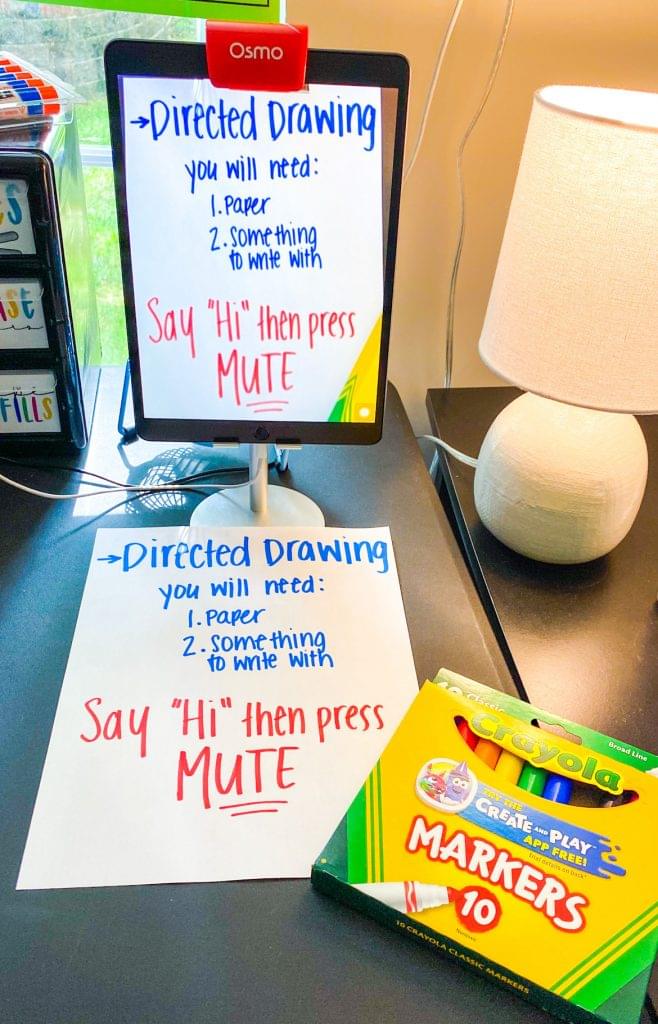 Osmo
→Directed Drawing
you will need:
1. Paper
2. Something
to write with
Say "Hi" then press
MUTE
FILLS
→Directed Drawing
you will need:
1. Paper
2. Something
to write with
Say "Hi" then press
MUTE
10 Classic
Broad Line
Crayola
TRY THE
CREATE AND PLAY™
APP FREE!
Trial details on back*
MARKERS
10
10 CRAYOLA CLASSIC MARKERS